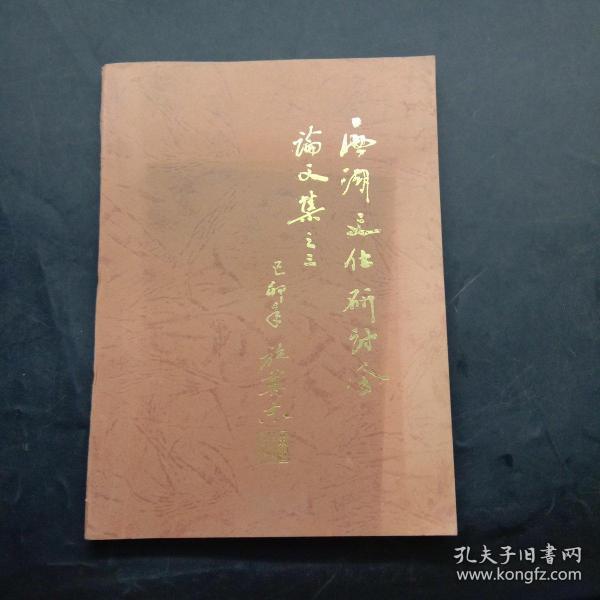 西湖 化研讨会
論文集之三
己卯年 施奠东
孔夫子旧书网
www.kongfz.com